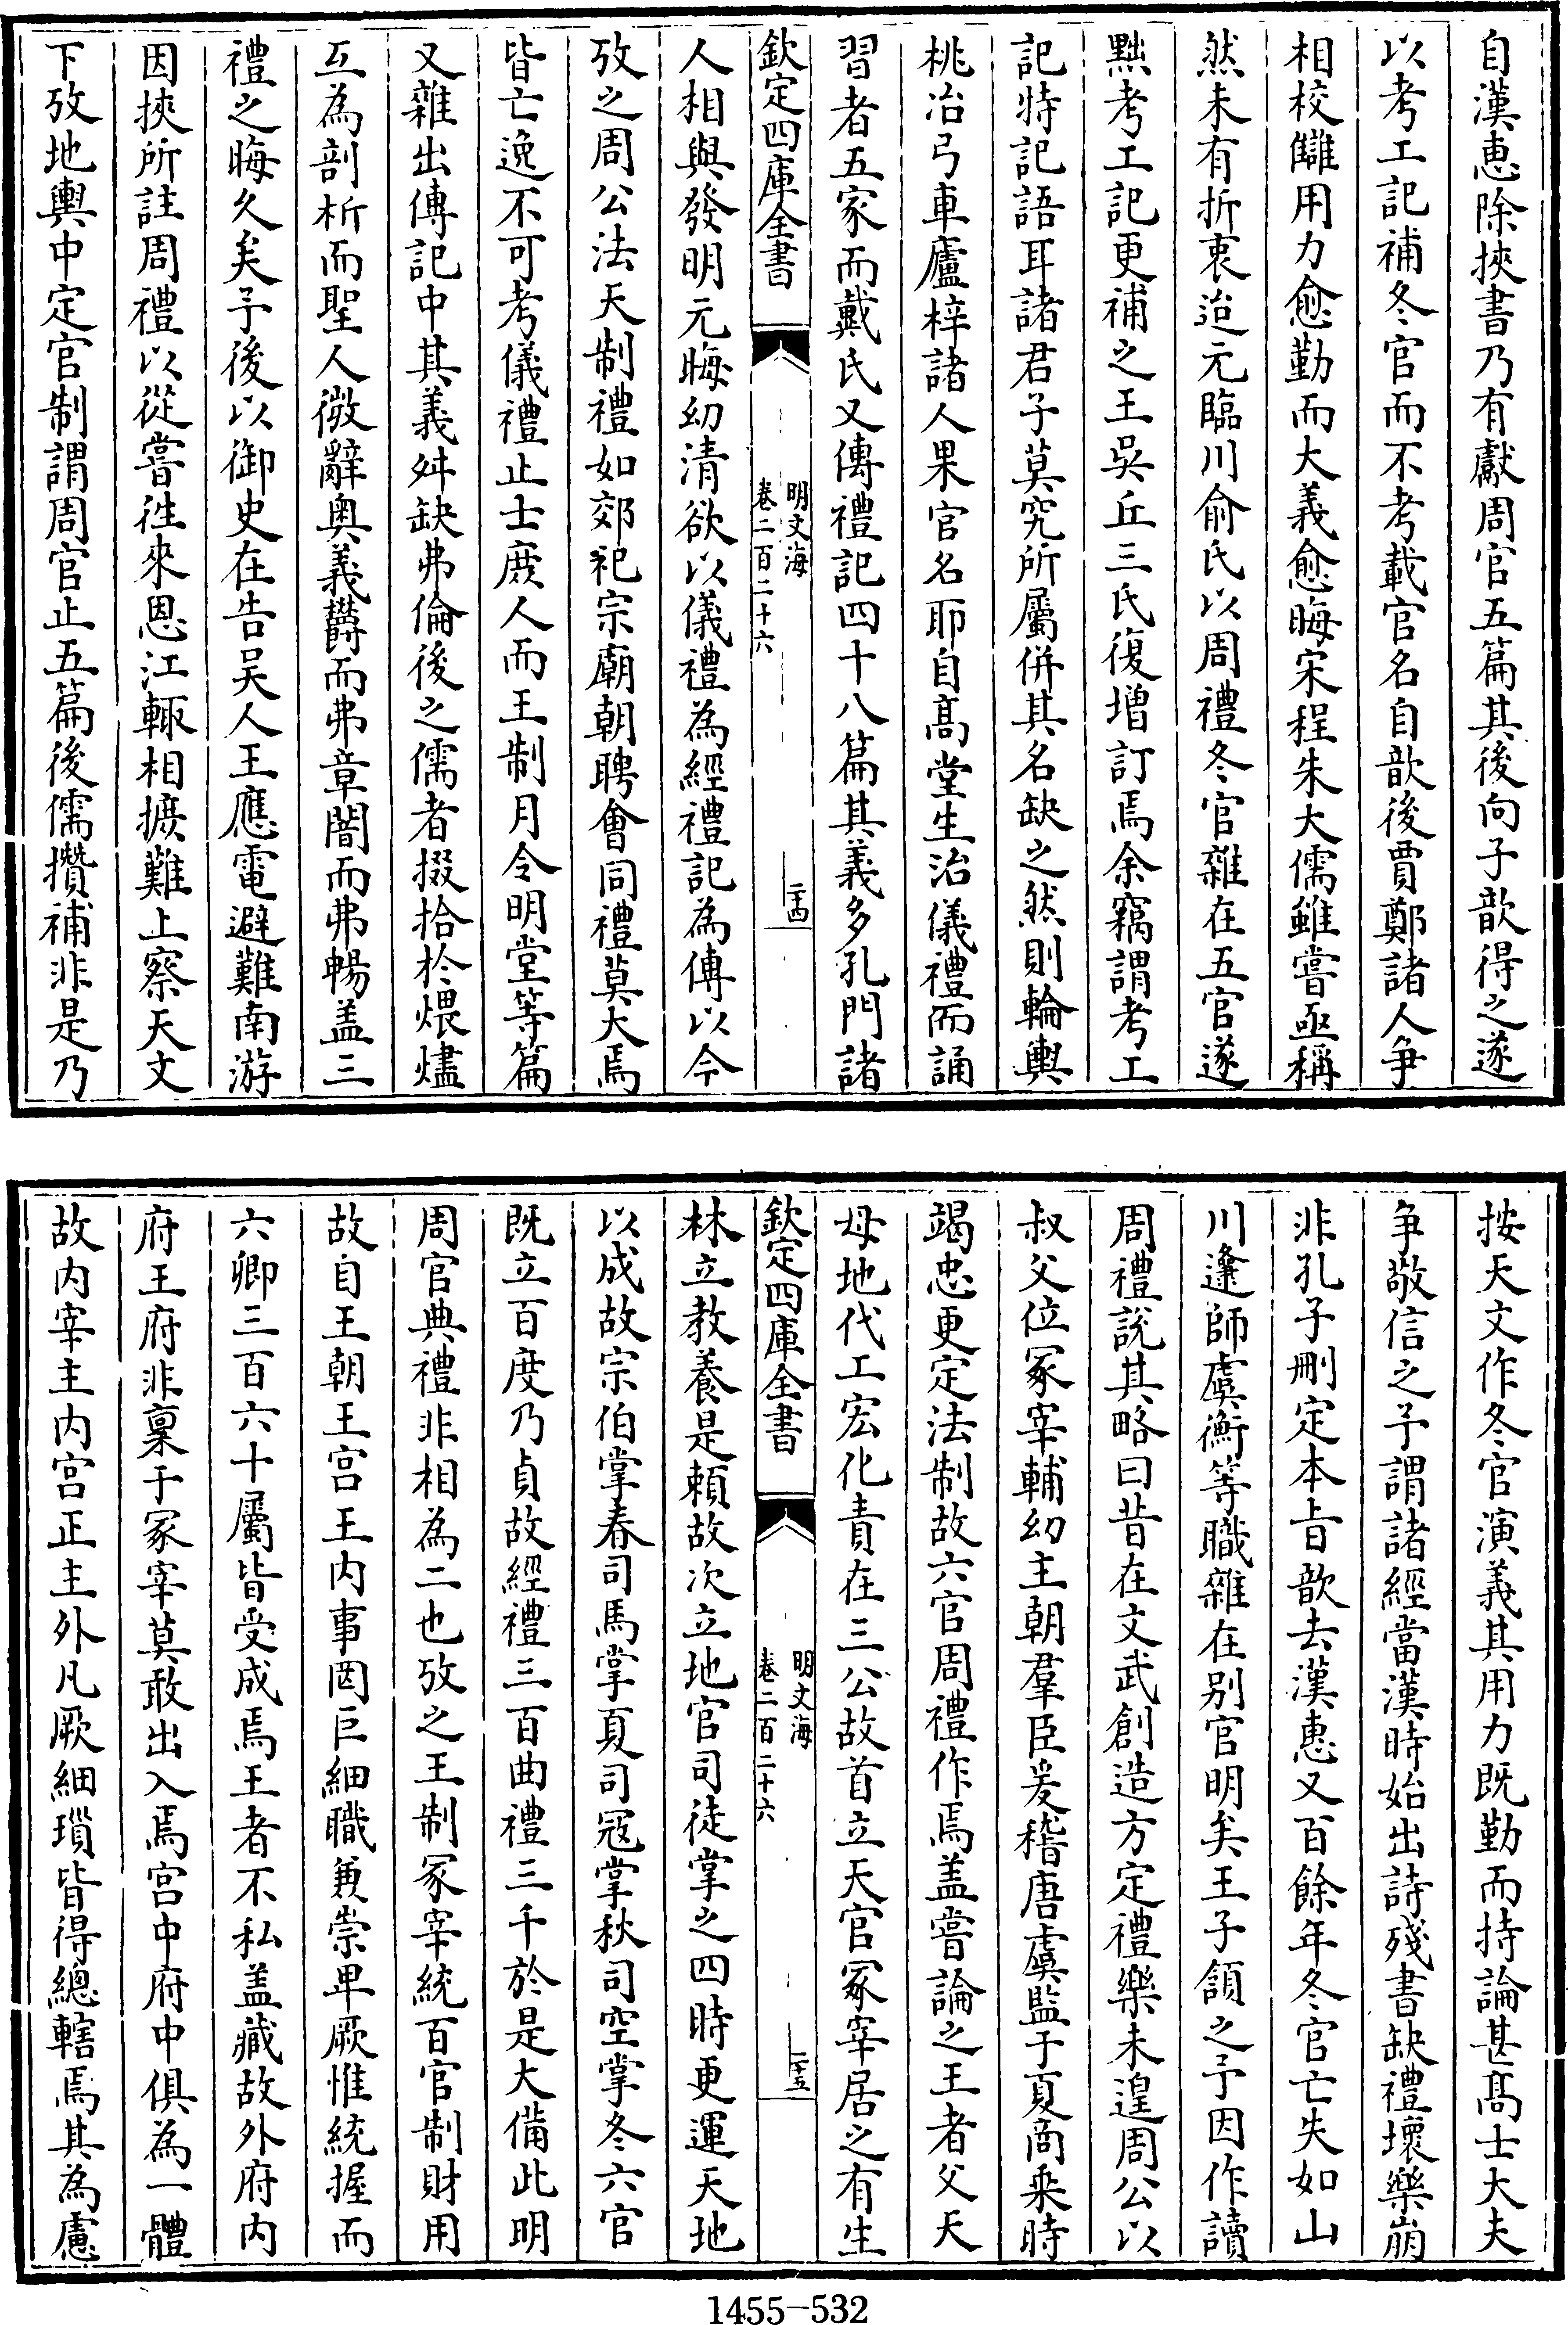 自漢惠除挾書乃有獻周官五篇其後向子歆得之遂
以考工記補冬官而不考載官名自歆後賈鄭諸人争
相校讎用力愈勤而大義愈晦宋程朱大儒雖嘗亟稱
然未有折衷迨元臨川俞氏以周禮冬官雜在五官遂
黜考工記更補之王吳丘三氏復增訂焉余竊謂考工
記特記語耳諸君子莫究所屬併其名缺之然則輪輿
桃冶弓車廬梓諸人果官名耶自髙堂生治儀禮而誦
習者五家而戴氏又傳禮記四十八篇其義多孔門諸
欽定四庫全書
明文海
卷二百二十六
二十四
人相與發明元晦幼清欲以儀禮為經禮記為傳以今
攷之周公法天制禮如郊祀宗廟朝聘會同禮莫大焉
皆亡逸不可考儀禮止士庻人而王制月令明堂等篇
又雜出傳記中其義舛缺弗倫後之儒者掇拾於煨燼
互為剖析而聖人微辭奥義欝而弗章闇而弗暢盖三
禮之晦久矣予後以御史在告吴人王應電避難南游
因挾所註周禮以從嘗徃來恩江輙相擴難上察天文
下攷地輿中定官制謂周官止五篇後儒攢補非是乃
按天文作冬官演義其用力既勤而持論甚髙士大夫
争敬信之予謂諸經當漢時始出詩殘書缺禮壞樂崩
非孔子刪定本旨歆去漢惠又百餘年冬官亡失如山
川邍師虞衡等職雜在别官明矣王子頷之予因作讀
周禮說其略曰昔在文武創造方定禮樂未遑周公以
叔父位冢宰輔幼主朝羣臣爰稽唐虞監于夏商乗時
竭忠更定法制故六官周禮作焉盖嘗論之王者父天
母地代工宏化責在三公故首立天官冢宰居之有生
欽定四庫全書
明文海
卷二百二十六
二十五
林立教養是頼故次立地官司徒掌之四時更運天地
以成故宗伯掌春司馬掌夏司冦掌秋司空掌冬六官
既立百度乃貞故經禮三百曲禮三千於是大備此明
周官典禮非相為二也攷之王制冢宰統百官制財用
故自王朝王宫王内事罔巨細職兼崇卑厥惟統握而
六卿三百六十屬皆受成焉王者不私盖藏故外府内
府王府非稟于冢宰莫敢出入焉宫中府中俱為一體
故内宰主内宫正主外凡厥細瑣皆得總轄焉其為慮
1455-532